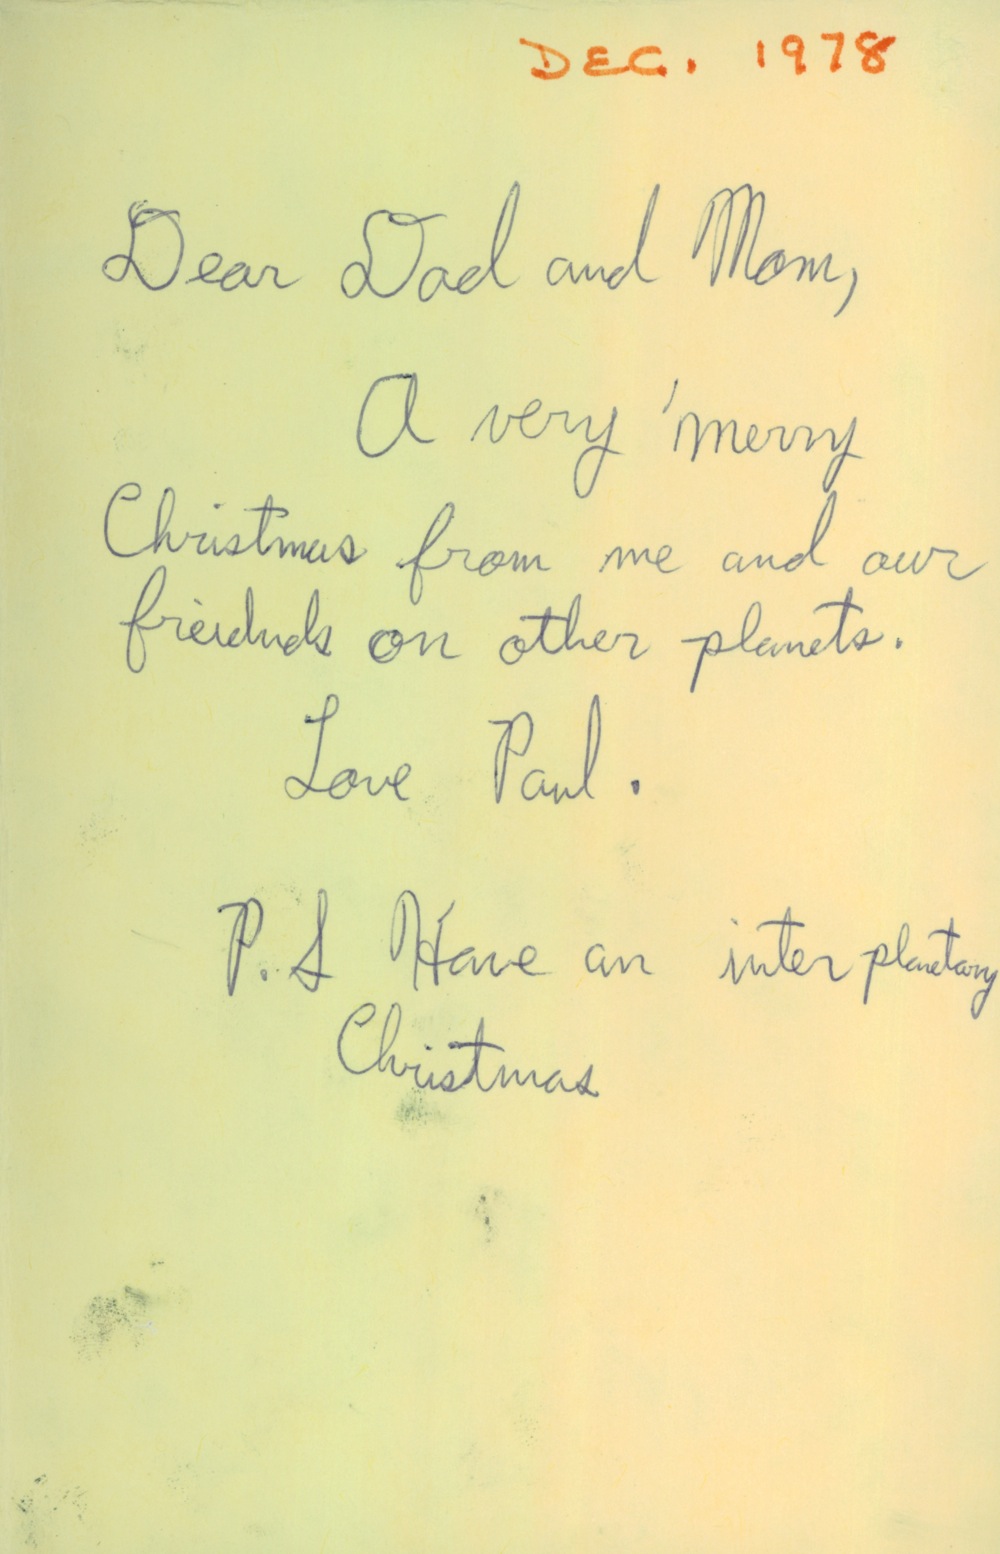 DEC. 1978
Dear Dad and Mom,
A very merry
Christmas from me and our
freidnds on other planets.
Love Paul.
P.S Have an inter planetary
Christmas